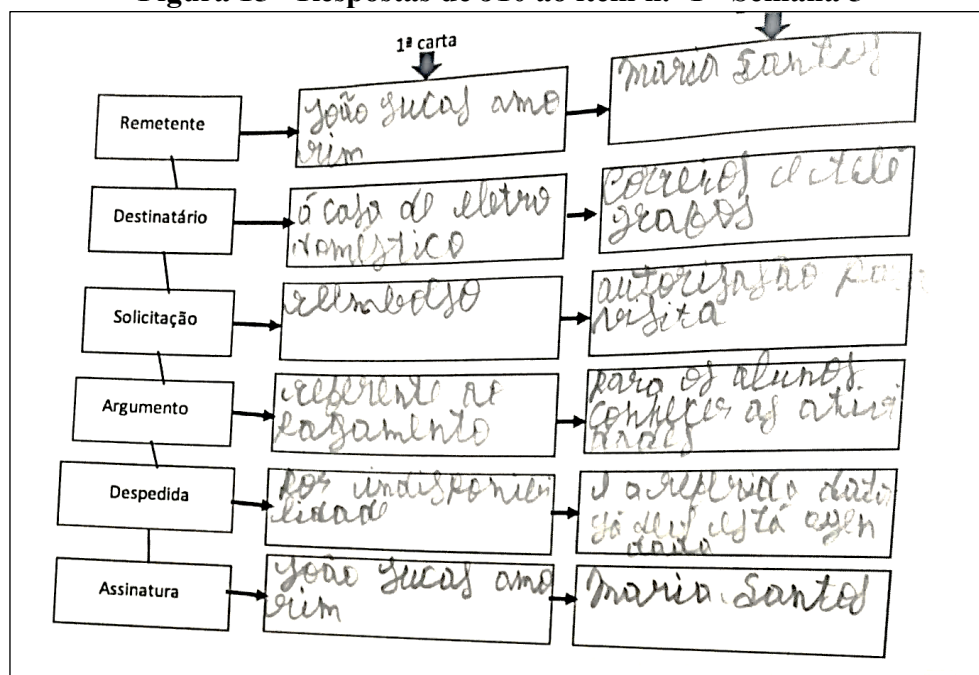 1ª carta
Remetente
João Lucas amo
rim
Maria Santos
Destinatário
á casa de eletro
domestico
Correios e telé
grafos
Solicitação
reembolso
autorisasão
visita
Argumento
referente ao
pagamento
para os alunos
conhecer as ativi
dades
Despedida
por indisponibi
lidade
a referida data
já está agen
dada
Assinatura
João Lucas amo
rim
Maria Santos